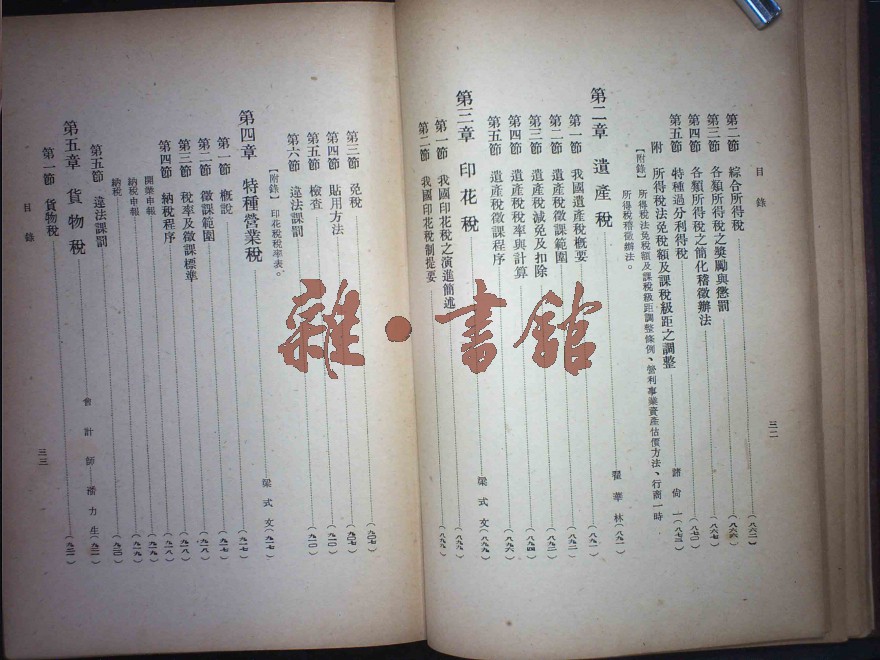 目錄
三二
第二節 綜合所得稅(八六二)
第三節 各類所得稅之獎勵與懲罰(八六六)
第四節 各類所得稅之簡化稽徵辦法(八六七)
第五節 特種過分利得稅(八七〇)
附 所得稅法免稅額及課稅級距之調整 諸尙一(八七三)
【附錄】所得稅法免稅額及課稅級距調整條例、營利事業資產估價方法、行商一時
所得稅稽徵辦法。
第二章 遺產稅 翟華林(八九一)
第一節 我國遺產稅概要(八九一)
第二節 遺產稅徵課範圍(八九二)
第三節 遺產稅減免及扣除(八九四)
第四節 遺產稅稅率與計算(八九六)
第五節 遺產稅徵課程序
第三章 印花稅 梁式文(八九九)
第一節 我國印花稅之演進簡述(八九九)
第二節 我國印花稅制提要(八九九)
第三節 免稅(九〇七)
第四節 貼用方法
第五節 檢查(九一〇)
第六節 違法課罰(九一〇)
【附錄】印花稅稅率表。
第四章 特種營業稅 梁式文(九一七)
第一節 概說(九一七)
第二節 徵課範圍(九一八)
第三節 稅率及徵課標準(九一八)
第四節 納稅程序(九一八)
開業申報(九一九)
納稅申報(九一九)
納稅(九二〇)
第五節 違法課罰
第五章 貨物稅 會計師 潘力生(九二一)
第一節 貨物稅(九二一)
目錄
三三
雜·書館